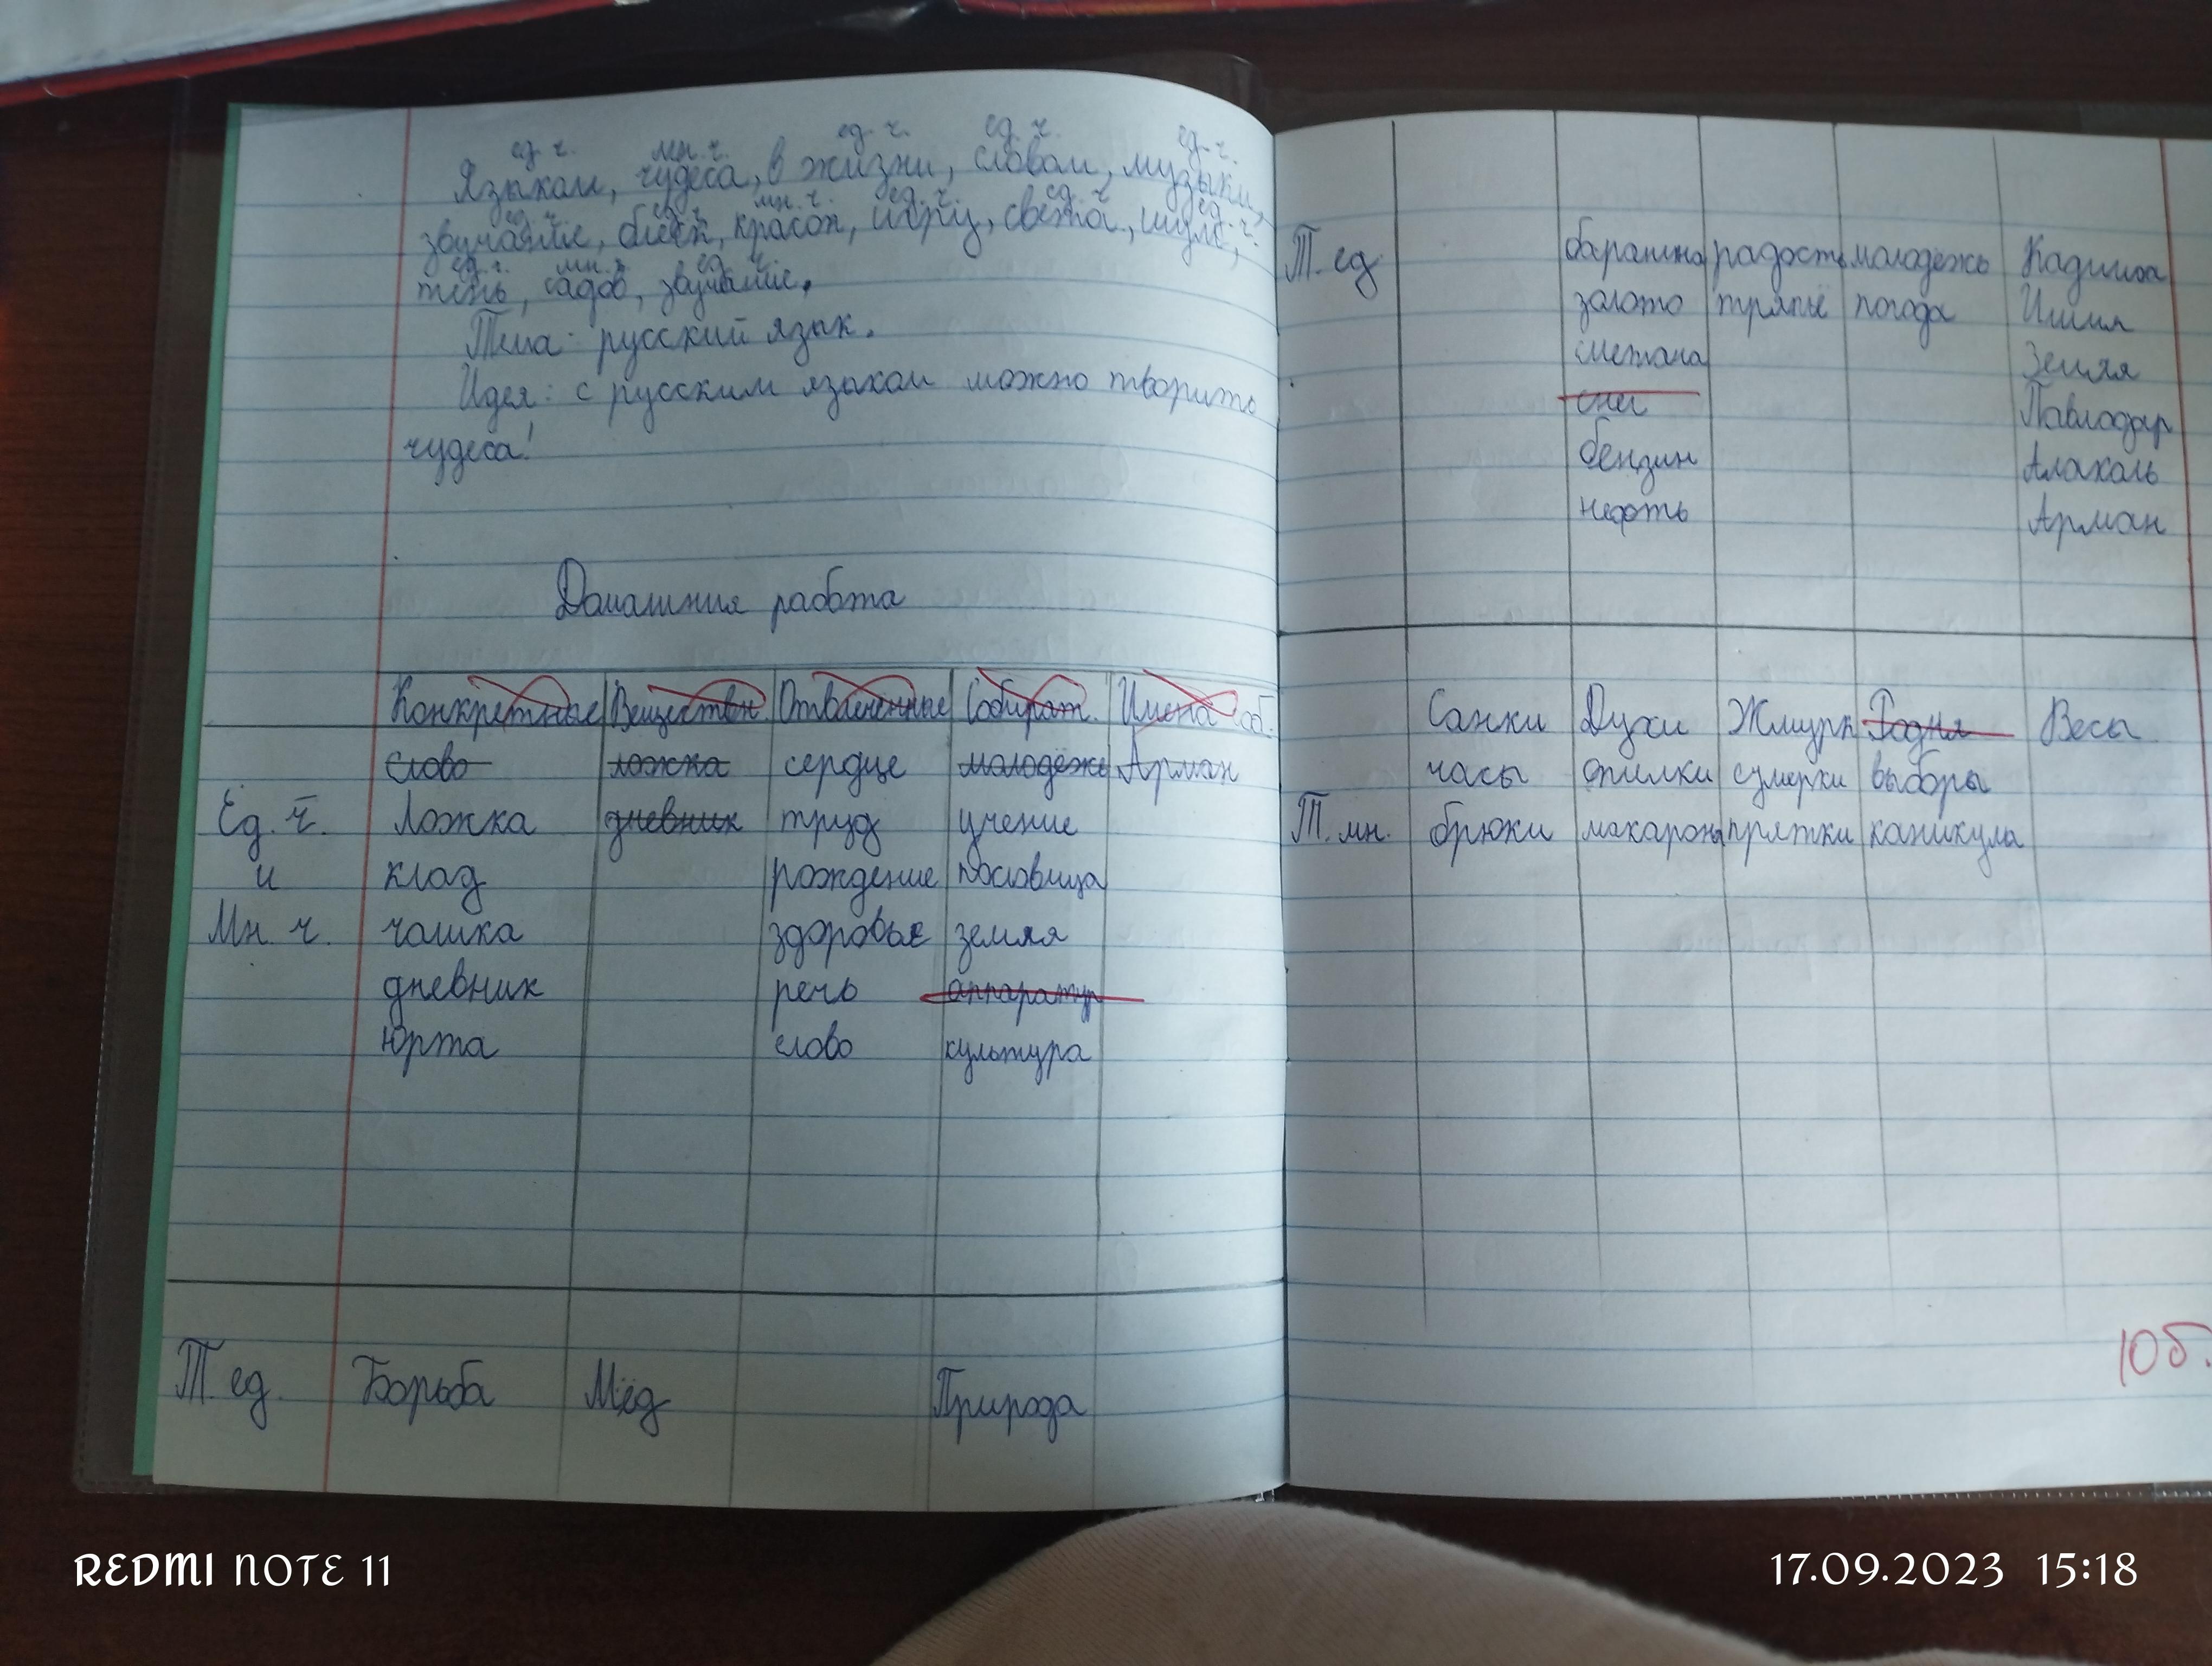 ед. ч. мн. ч. ед. ч. ед. ч. ед. ч.
Языком, чудеса, в жизни, словом, музыки,
ед. ч. ед. ч. мн. ч. ед. ч. ед. ч. ед. ч.
звучание, блеск, красок, игру, света, шум,
ед. ч. мн. ч. ед. ч.
тень, садов, звучание.
Тема: русский язык.
Идея: с русским языком можно творить
чудеса!
Домашния работа
Конкретные Веществен. Отвлечённые Собират. Имена соб.
слово ложка сердце молодёжь Арман
Ед. ч. Ложка дневник труд учение
и клад рождение пословица
Мн. ч. чашка здоровье земля
дневник речь аппаратур
юрта слово культура
Т ед. Борьба Мёд Природа
Т. ед баранина радость молодёжь Кадиша
золото тряпьё погода Ишим
сметана Земля
снег Павлодар
бензин Алаколь
нефть Арман
Санки Духи Жмурк Родня Весы
часы опилки сумерки выборы
Т. мн. брюки макароны прятки каникула
10б.
REDMI NOTE 11
17.09.2023 15:18